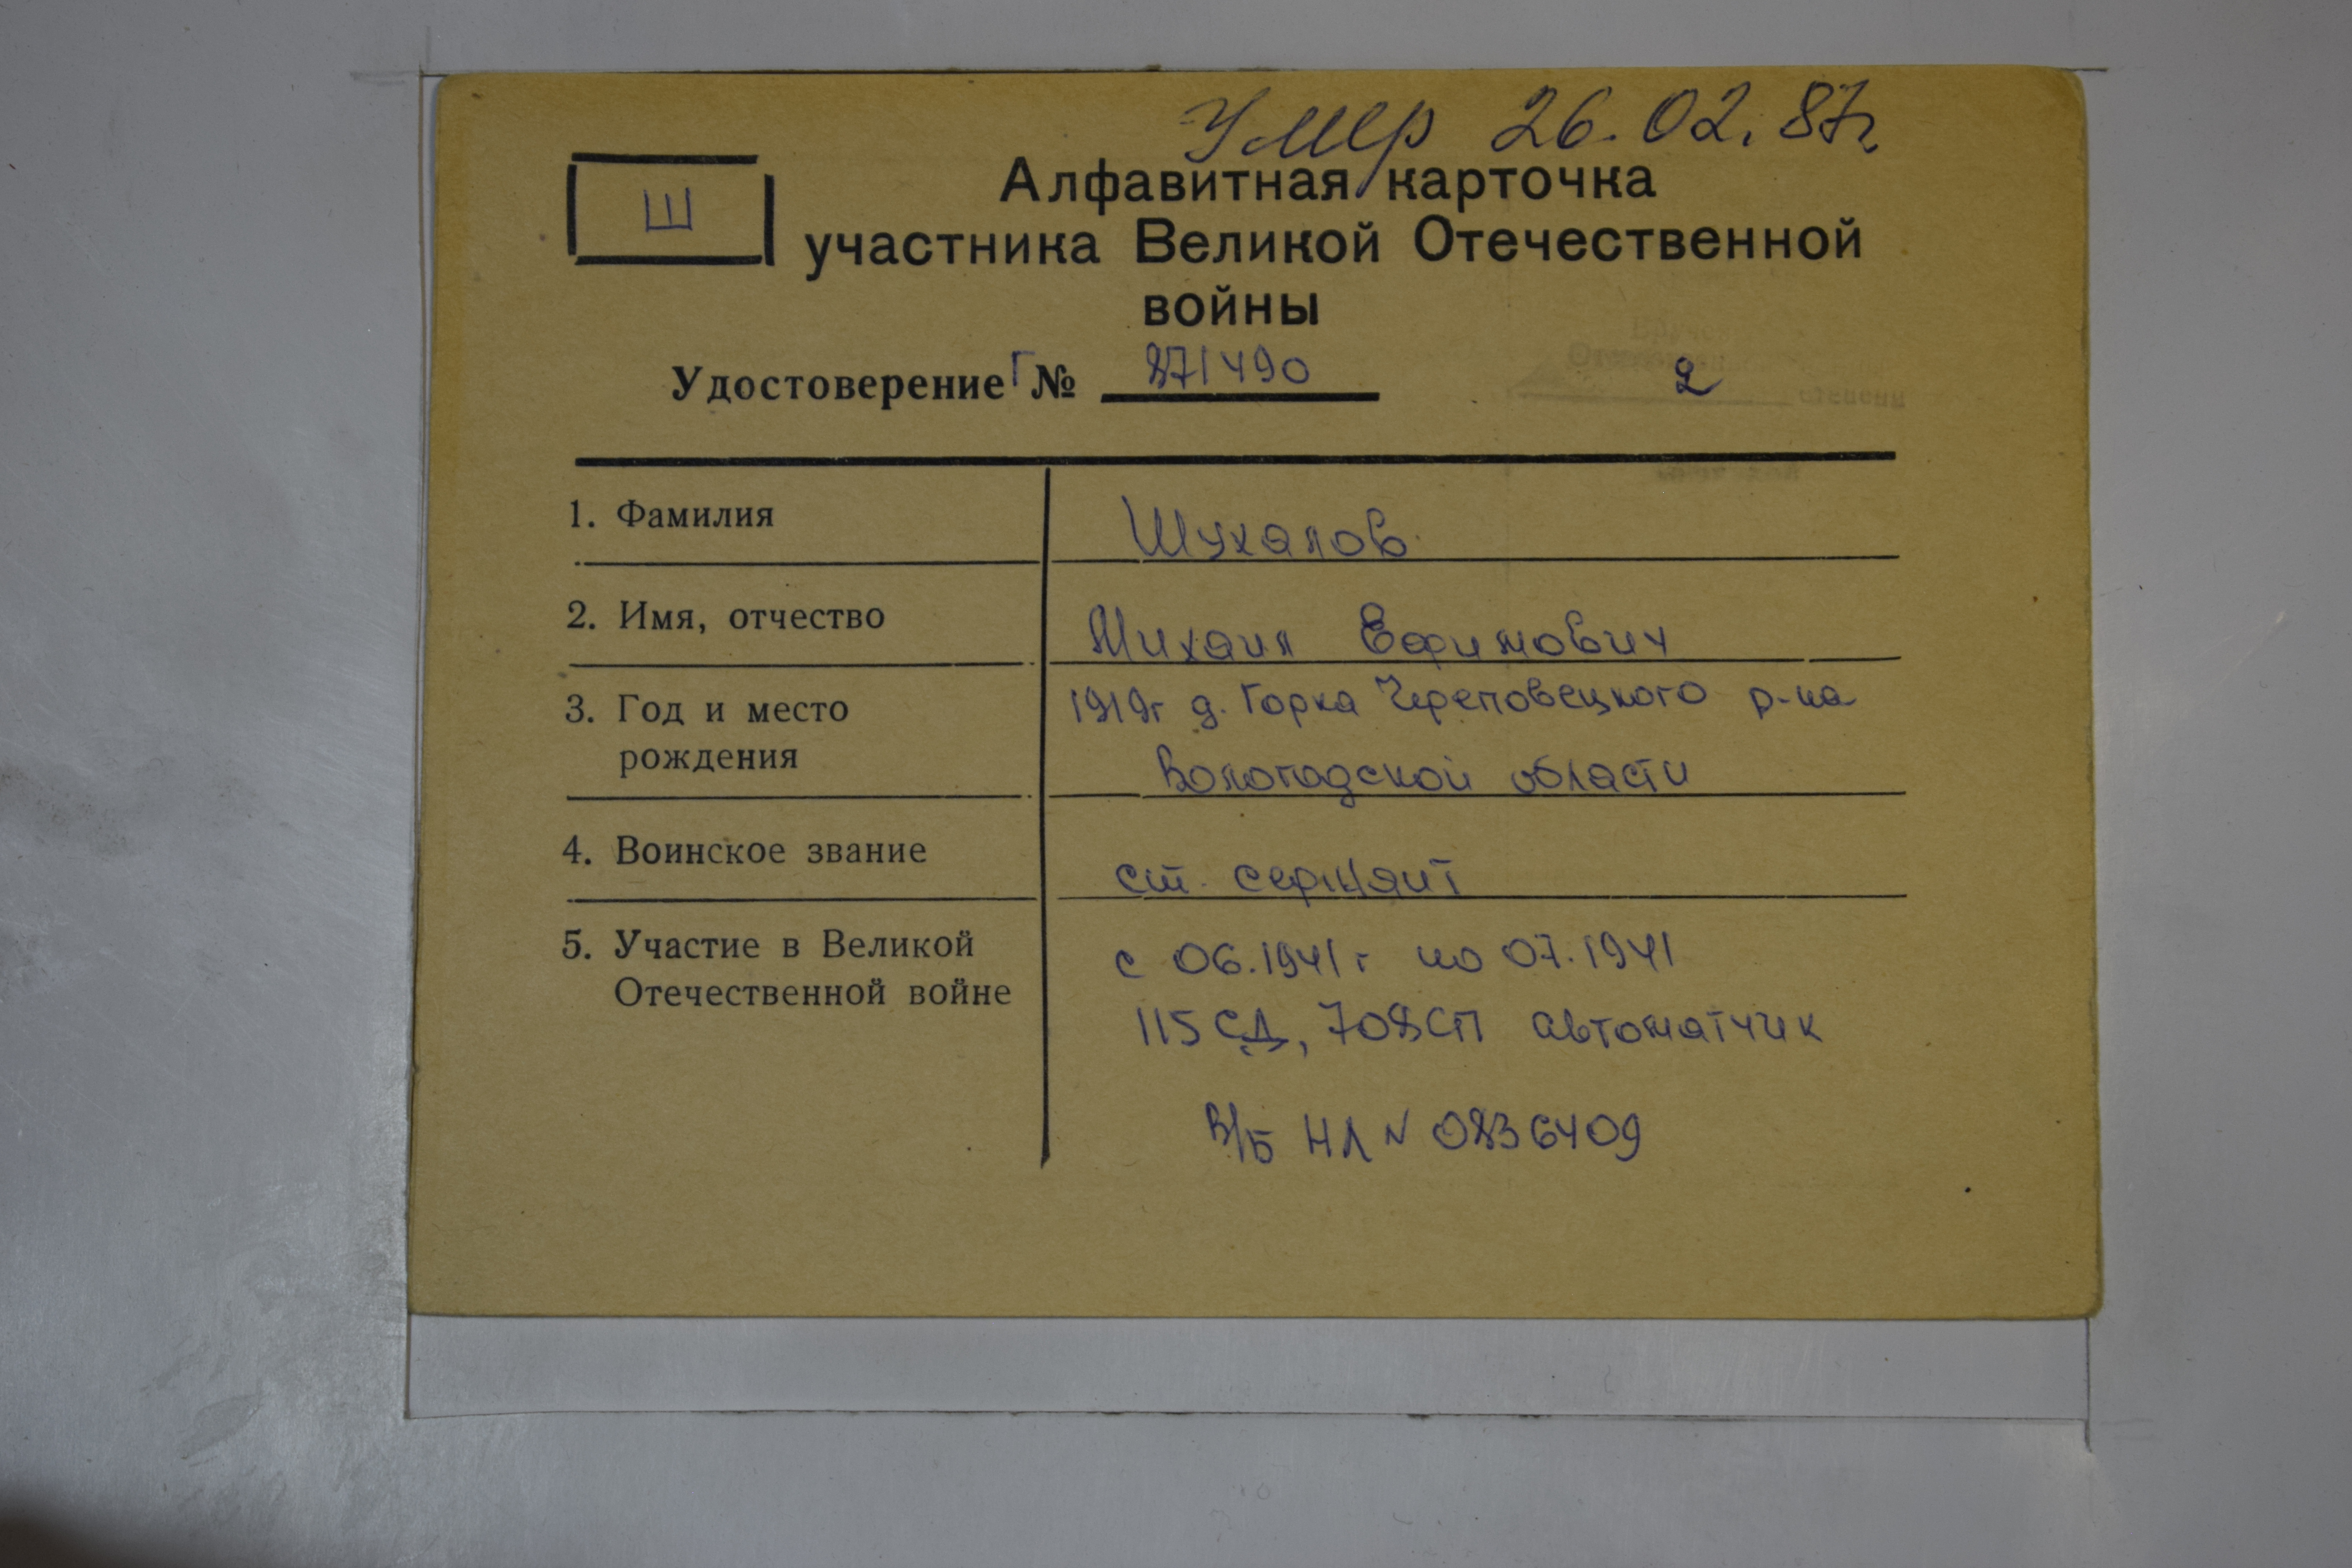 Умер 26.02.87г
Ш
Алфавитная карточка
участника Великой Отечественной
войны
Удостоверение Г № 871490
2
1. Фамилия
Шухалов
2. Имя, отчество
Михаил Ефимович
3. Год и место
рождения
1919г д. Горка Череповецкого р-на
Вологодской области
4. Воинское звание
ст. сержант
5. Участие в Великой
Отечественной войне
с 06.1941г по 07.1941
115 СД, 708СП автоматчик
В/Б НЛ № 0836409